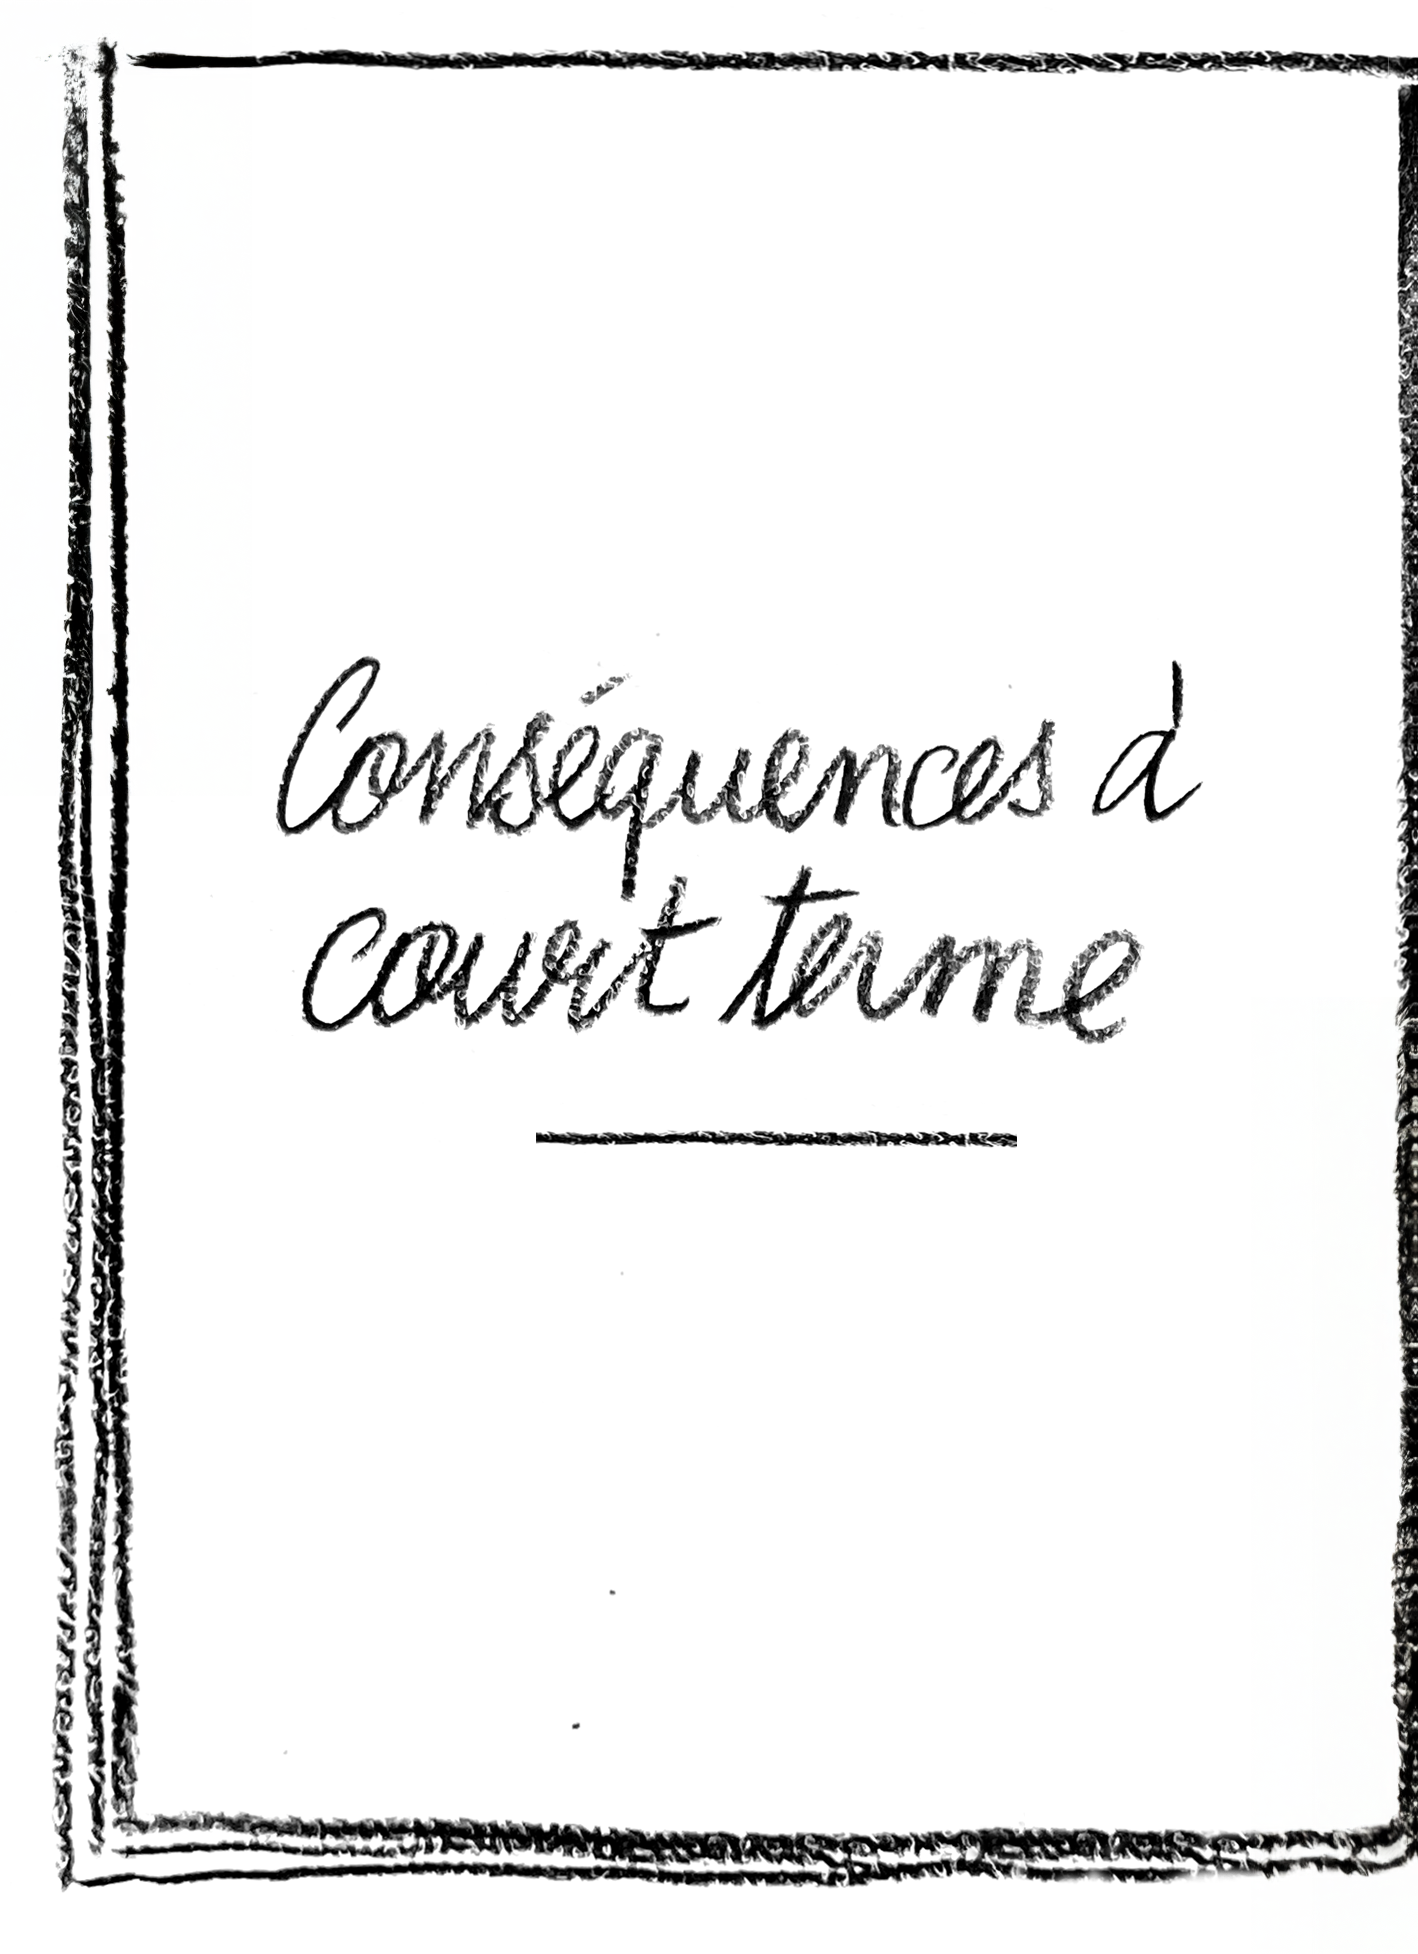 Conséquences à
court terme